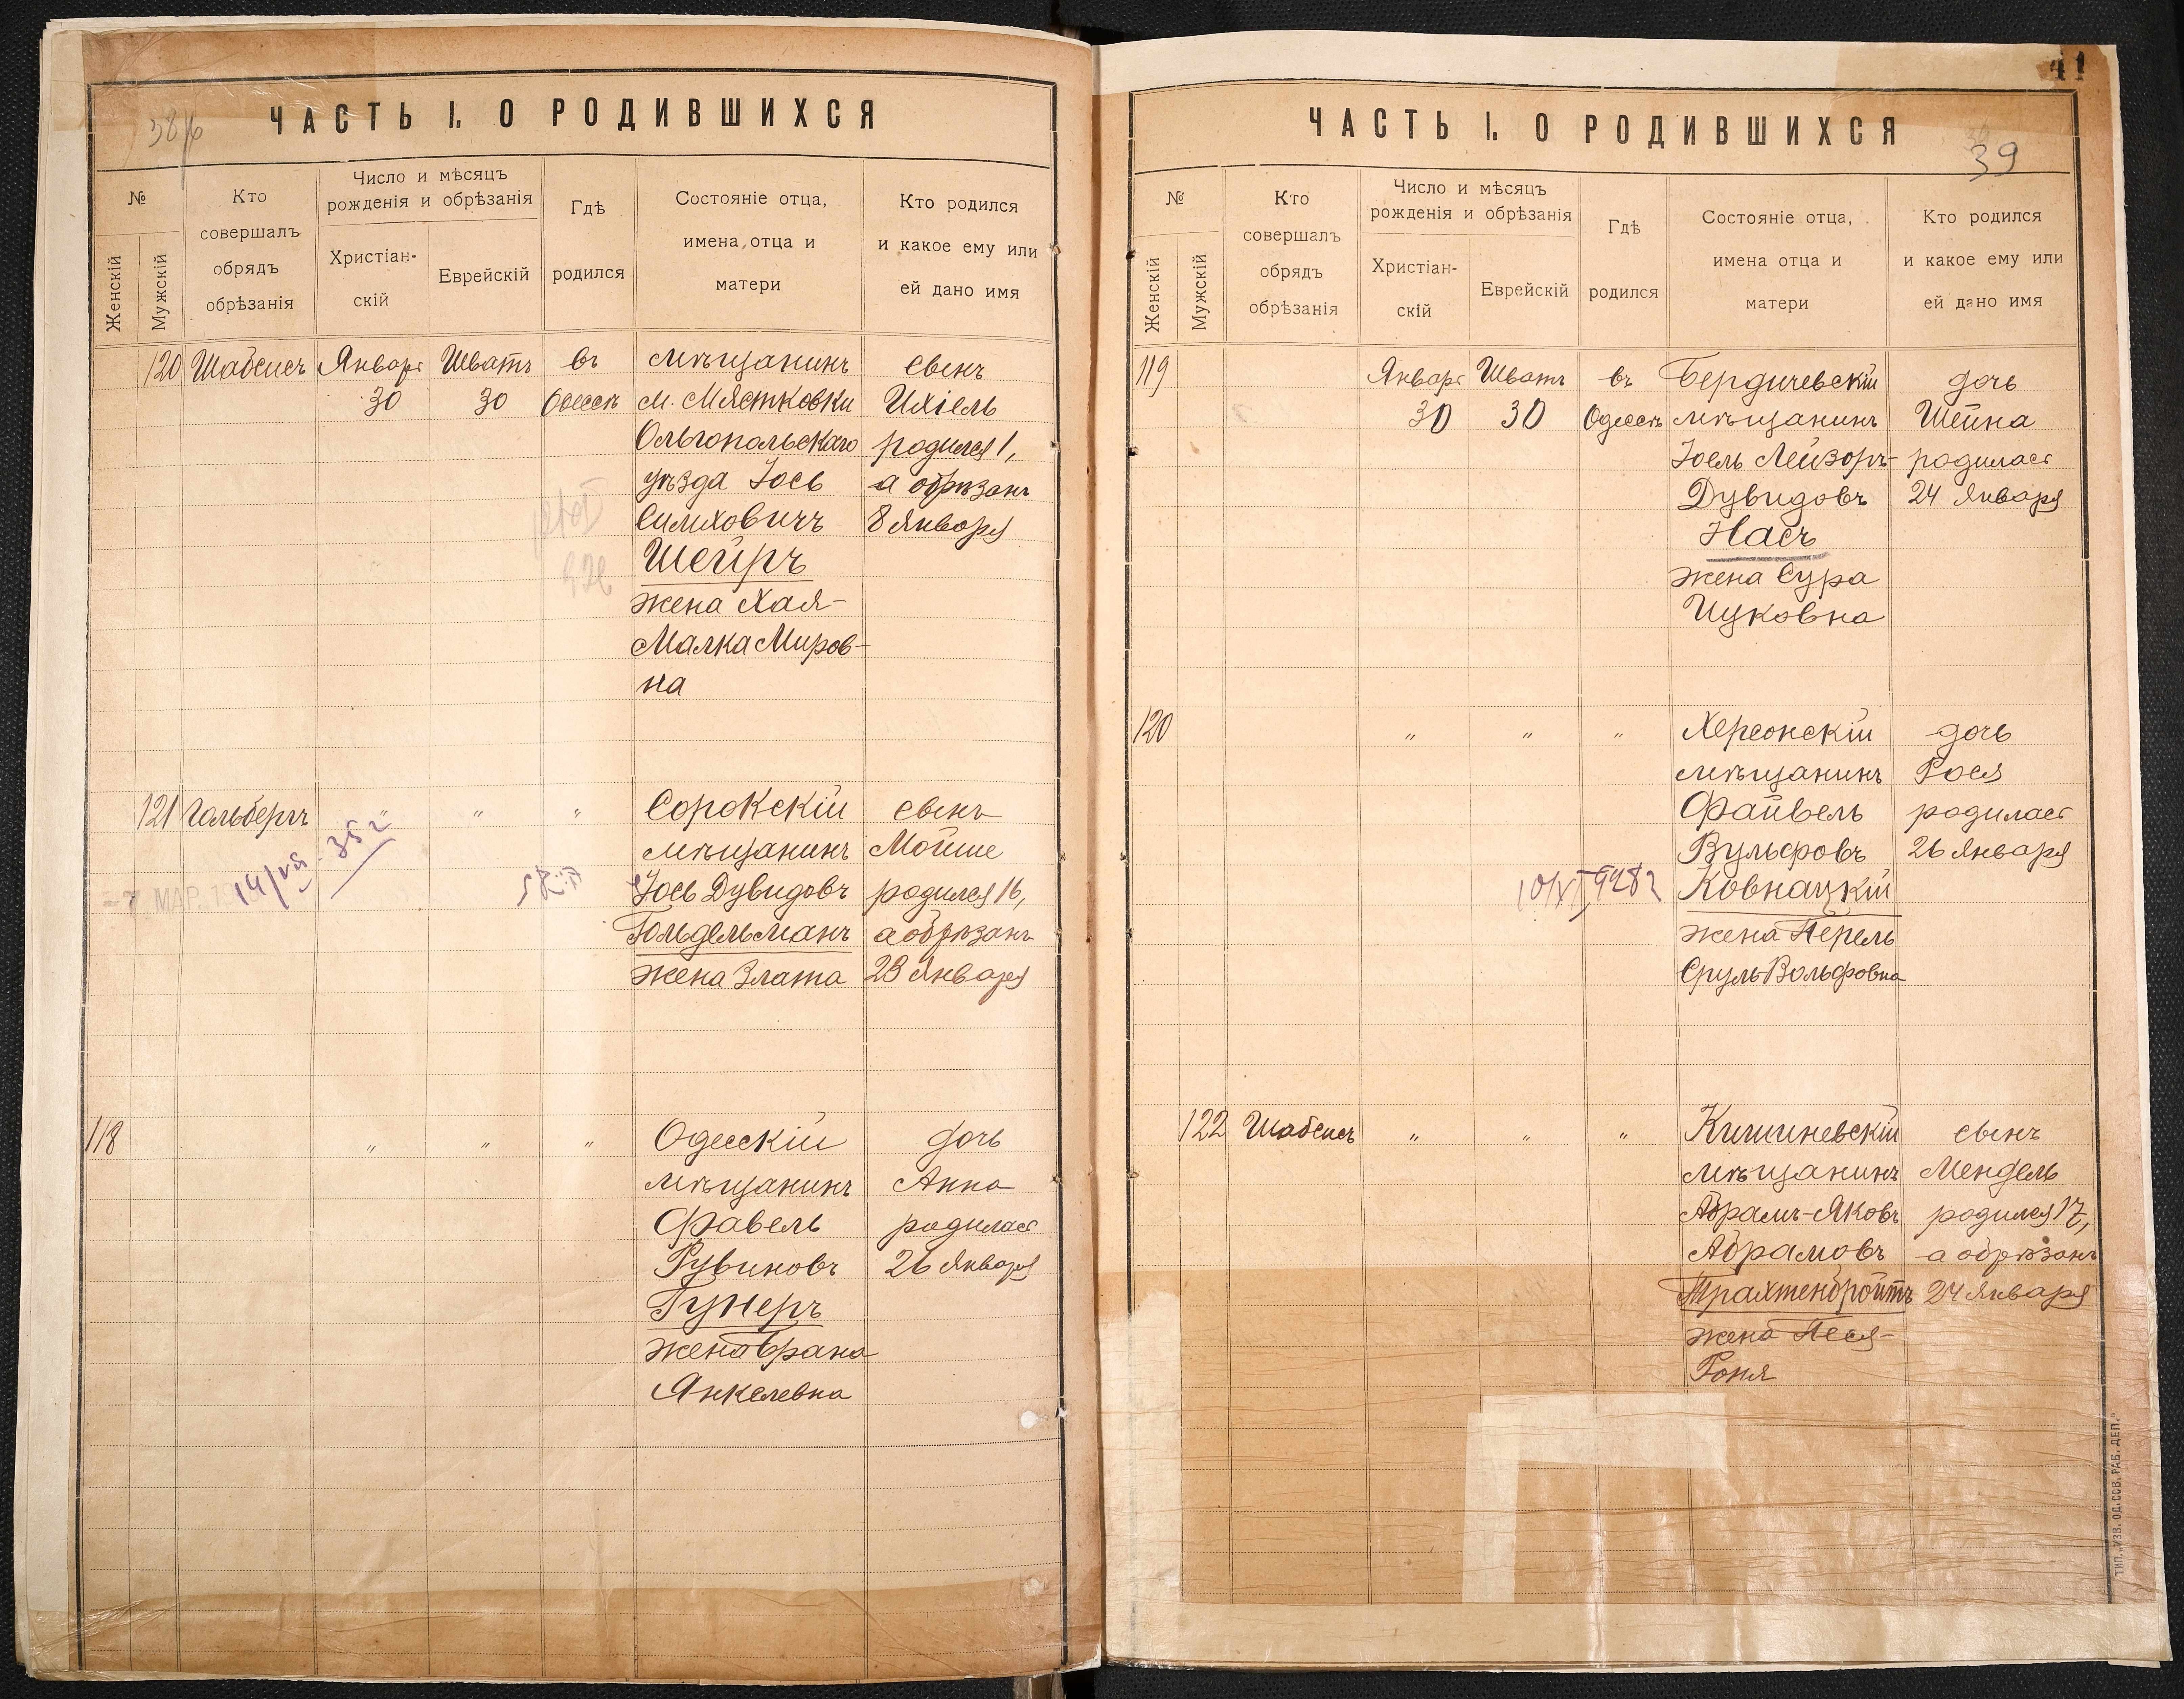 ЧАСТЬ I. О РОДИВШИХСЯ
№
Женскій
Мужскій
Кто
совершалъ
обрядъ
обрѣзанія
Число и мѣсяцъ
рожденія и обрѣзанія
Христіан-
скій
Еврейскій
Гдѣ
родился
Состояніе отца,
имена отца и
матери
Кто родился
и какое ему или
ей дано имя
120 Шабсисъ Январь Шватъ въ мѣщанинъ сынъ
30 30 Одессѣ м. Мястковки Ихіель
Ольгопольскаго родился 1,
уѣзда Іось а обрѣзанъ
Симховичъ 8 Января
Шейръ
жена Хая-
Малка Миров-
на
121 Гольбергъ " " " Сорокскій сынъ
мѣщанинъ Мойше
Іось Дувидовъ родился 16,
Гольдельманъ а обрѣзанъ
жена Злата 23 Января
14/VII 35 г
118 " " " Одесскій дочь
мѣщанинъ Анна
Фавель родилась
Рувиновъ 26 Января
Гунеръ
жена Брана
Янкелевна
41
ЧАСТЬ I. О РОДИВШИХСЯ
39
№
Женскій
Мужскій
Кто
совершалъ
обрядъ
обрѣзанія
Число и мѣсяцъ
рожденія и обрѣзанія
Христіан-
скій
Еврейскій
Гдѣ
родился
Состояніе отца,
имена отца и
матери
Кто родился
и какое ему или
ей дано имя
119 Январь Шватъ въ Бердичевскій дочь
30 30 Одессѣ мѣщанинъ Шейна
Іоель Лейзоръ- родилась
Дувидовъ 24 Января
Насъ
жена Сура
Ицковна
120 " " " Херсонскій дочь
мѣщанинъ Рося
Файвель родилась
Вульфовъ 26 Января
Ковнацкій
жена Перель
Сруль-Вольфовна
122 Шабсисъ " " " Кишиневскій сынъ
мѣщанинъ Мендель
Абрамъ-Яковъ родился 17,
Абрамовъ а обрѣзанъ
Трахтенбройтъ 24 Января
жена Песя-
Роня
ТИП. „УЗВ. ОД. СОВ. РАБ. ДЕП."